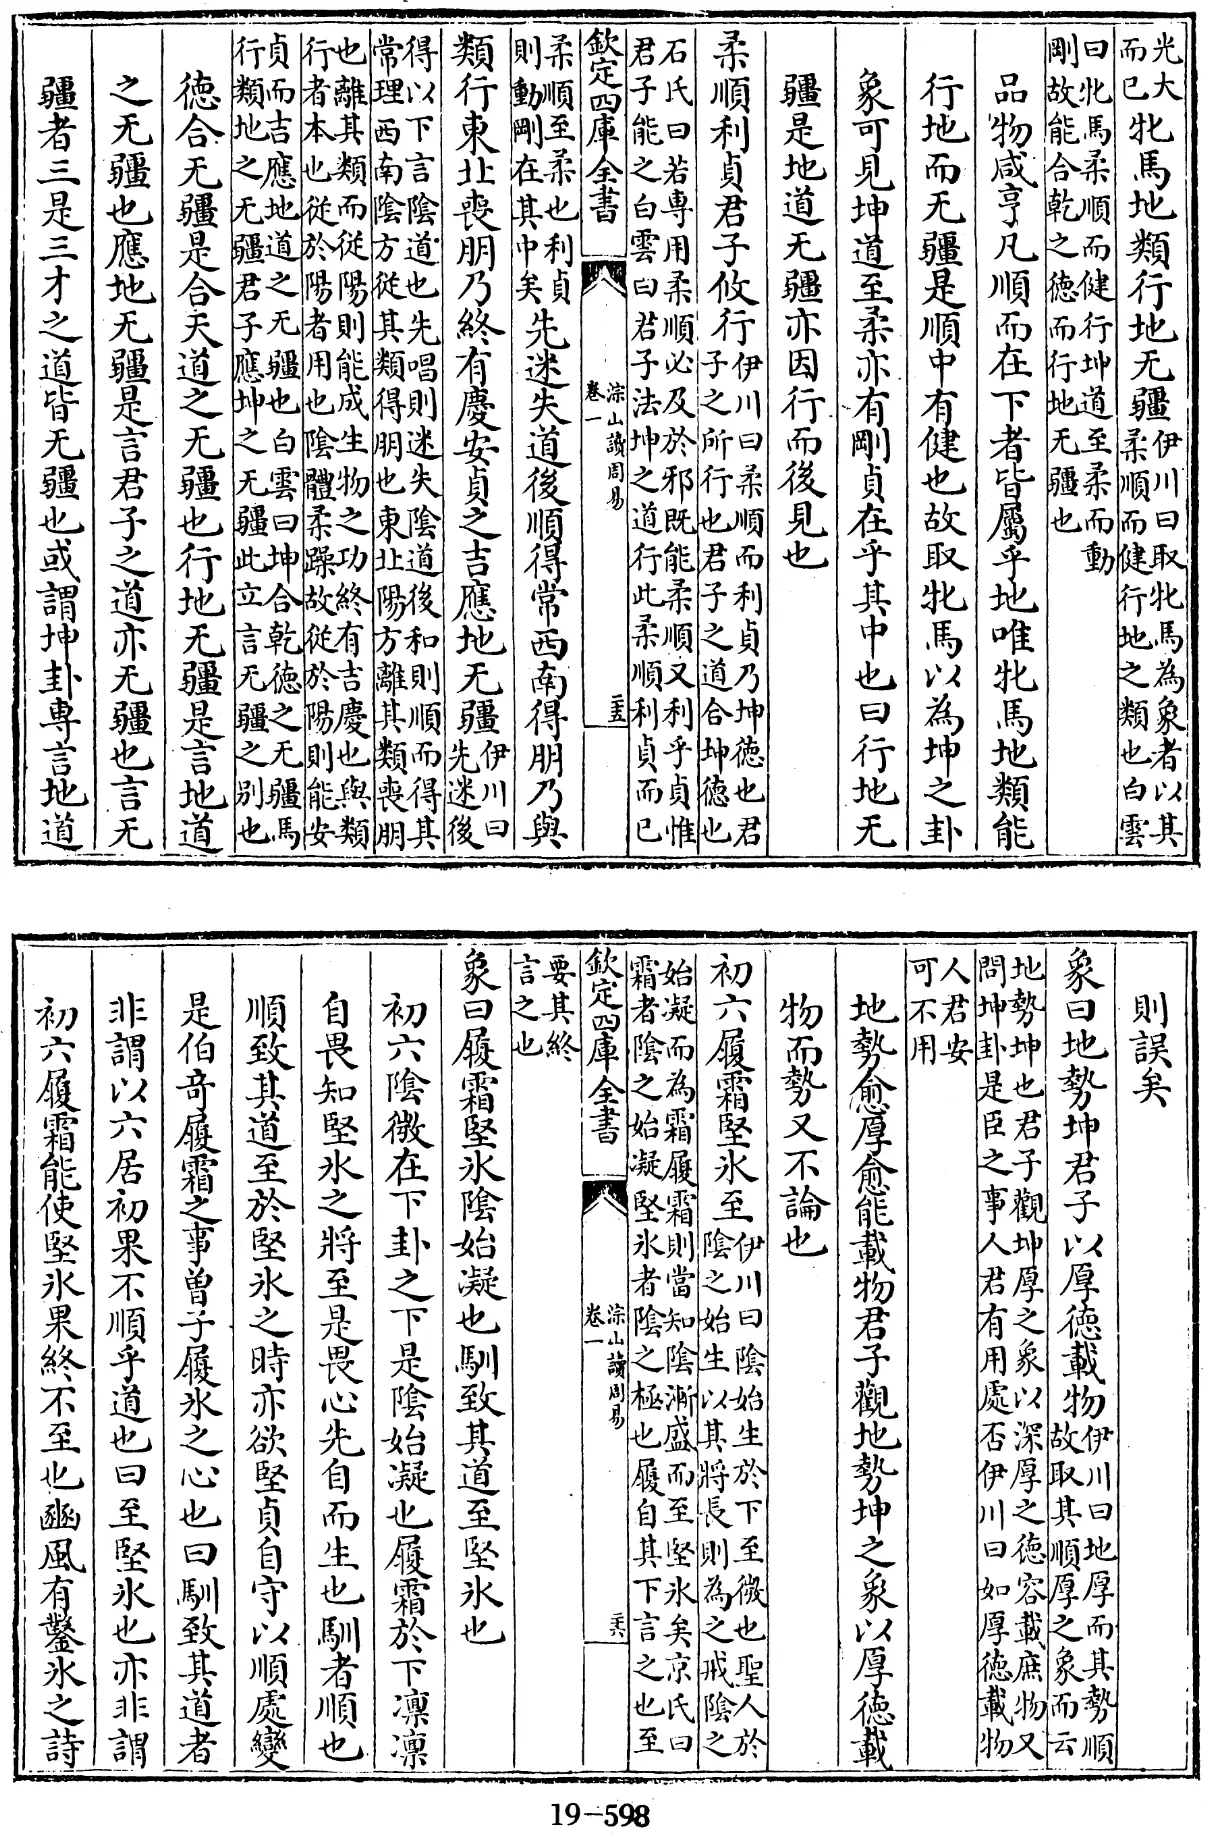 光大牝馬地類行地无疆伊川曰取牝馬為象者以其柔順而健行地之類也白雲
而已
曰牝馬柔順而健行坤道至柔而動
剛故能合乾之德而行地无疆也
品物咸亨凡順而在下者皆屬乎地唯牝馬地類能
行地而无疆是順中有健也故取牝馬以為坤之卦
象可見坤道至柔亦有剛貞在乎其中也曰行地无
疆是地道无疆亦因行而後見也
柔順利貞君子攸行伊川曰柔順而利貞乃坤德也君子之所行也君子之道合坤德也
石氏曰若專用柔順必及於邪既能柔順又利乎貞惟
君子能之白雲曰君子法坤之道行此柔順利貞而已
欽定四庫全書
淙山讀周易
卷一
二五
柔順至柔也利貞
則動剛在其中矣
先迷失道後順得常西南得朋乃與
類行東北喪朋乃終有慶安貞之吉應地无疆伊川曰先迷後
得以下言陰道也先唱則迷失陰道後和則順而得其
常理西南陰方從其類得朋也東北陽方離其類喪朋
也離其類而從陽則能成生物之功終有吉慶也與類
行者本也從於陽者用也陰體柔躁故從於陽則能安
貞而吉應地道之无疆也白雲曰坤合乾德之无疆馬
行類地之无疆君子應坤之无疆此立言无疆之別也
德合无疆是合天道之无疆也行地无疆是言地道
之无疆也應地无疆是言君子之道亦无疆也言无
疆者三是三才之道皆无疆也或謂坤卦專言地道
則誤矣
象曰地勢坤君子以厚德載物伊川曰地厚而其勢順故取其順厚之象而云
地勢坤也君子觀坤厚之象以深厚之德容載庶物又
問坤卦是臣之事人君有用處否伊川曰如厚德載物
人君安
可不用
地勢愈厚愈能載物君子觀地勢坤之象以厚德載
物而勢又不論也
初六履霜堅氷至伊川曰陰始生於下至微也聖人於陰之始生以其將長則為之戒陰之
始凝而為霜履霜則當知陰漸盛而至堅氷矣京氏曰
霜者陰之始凝堅氷者陰之極也履自其下言之也至
欽定四庫全書
淙山讀周易
卷一
二六
要其終
言之也
象曰履霜堅氷陰始凝也馴致其道至堅氷也
初六陰微在下卦之下是陰始凝也履霜於下凛凛
自畏知堅氷之將至是畏心先自而生也馴者順也
順致其道至於堅氷之時亦欲堅貞自守以順處變
是伯奇履霜之事曾子履氷之心也曰馴致其道者
非謂以六居初果不順乎道也曰至堅氷也亦非謂
初六履霜能使堅氷果終不至也豳風有鑿氷之詩
19-598